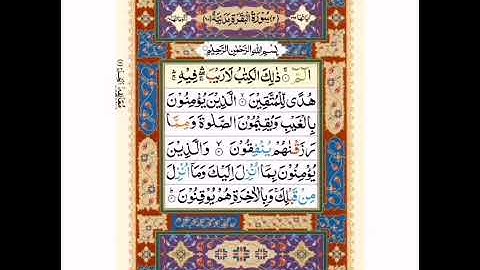 سُوْرَةُ الْبَقَرَةِ مَدَنِيَّةٌ
بِسْمِ اللّٰهِ الرَّحْمٰنِ الرَّحِيْمِ
الٓمّٓ ۚ ذٰلِكَ الْكِتٰبُ لَا رَيْبَ ۛ فِيْهِ ۛ
هُدًى لِّلْمُتَّقِيْنَ ۙ الَّذِيْنَ يُؤْمِنُوْنَ
بِالْغَيْبِ وَيُقِيْمُوْنَ الصَّلٰوةَ وَمِمَّا
رَزَقْنٰهُمْ يُنْفِقُوْنَ ۙ وَالَّذِيْنَ
يُؤْمِنُوْنَ بِمَآ اُنْزِلَ اِلَيْكَ وَمَآ اُنْزِلَ
مِنْ قَبْلِكَ ۚ وَبِالْاٰخِرَةِ هُمْ يُوْقِنُوْنَ ۗ